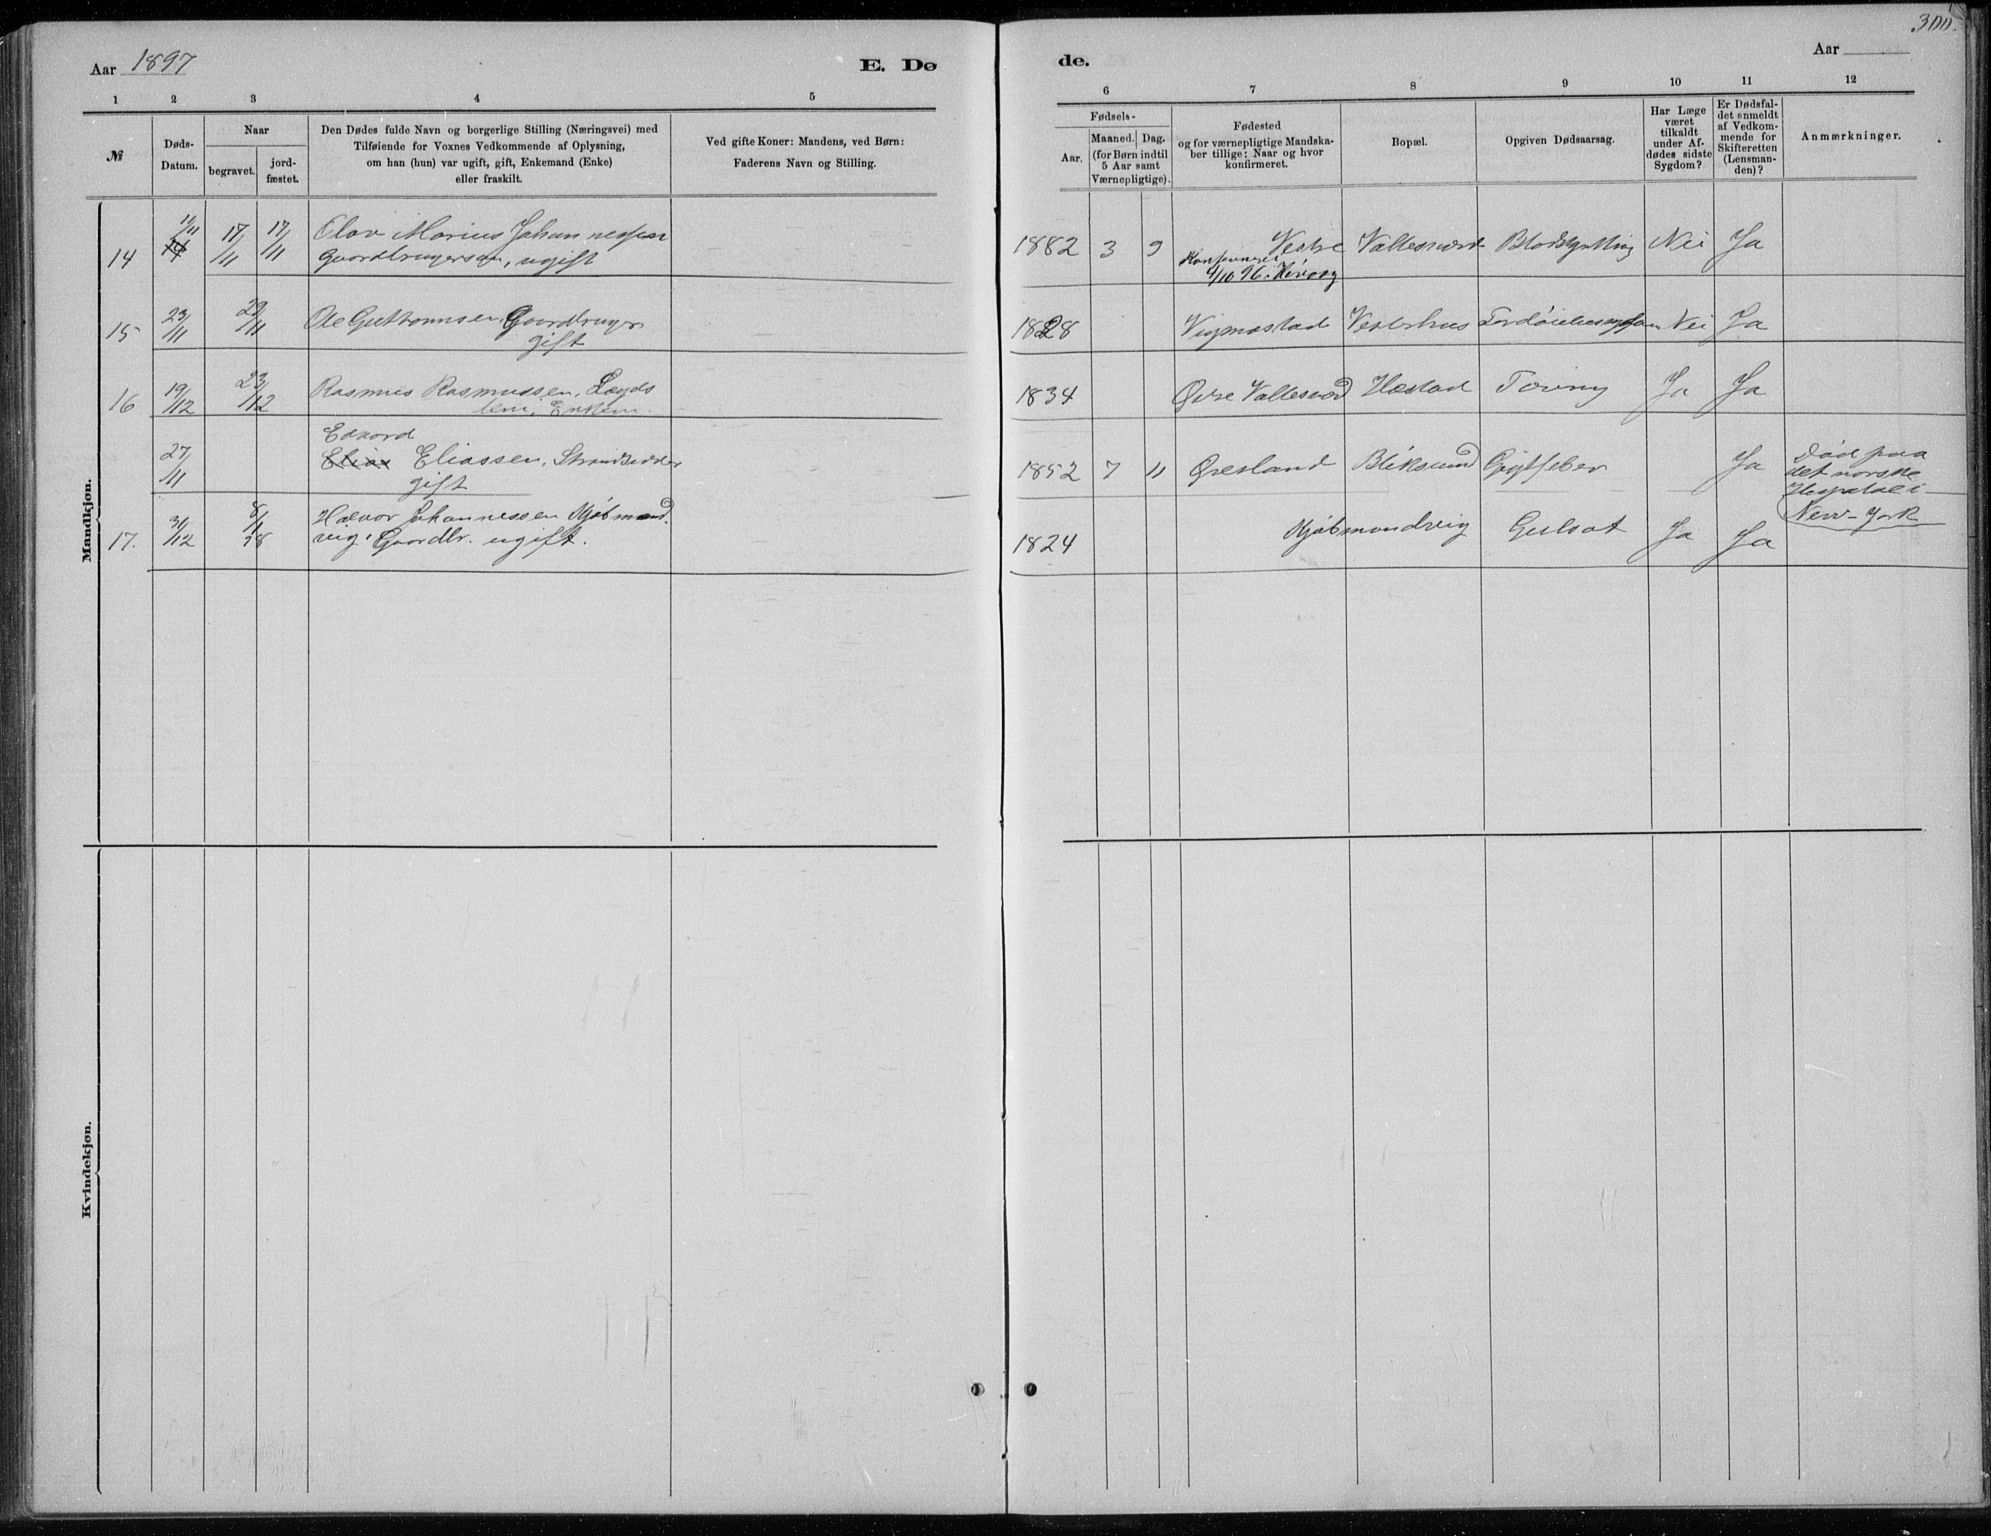 300.
Aar 1897
E. Dø
de.
Aar
1 2 3 4 5
6 7 8 9 10 11 12
№
Døds-
Datum.
Naar
begravet.
jord-
fæstet.
Den Dødes fulde Navn og borgerlige Stilling (Næringsvei) med
Tilføiende for Voxnes Vedkommende af Oplysning,
om han (hun) var ugift, gift, Enkemand (Enke)
eller fraskilt.
Ved gifte Koner: Mandens, ved Børn:
Faderens Navn og Stilling.
Fødsels-
Aar.
Maaned.
Dag.
(for Børn indtil
5 Aar samt
Værnepligtige).
Fødested
og for værnepligtige Mandska-
ber tillige: Naar og hvor
konfirmeret.
Bopæl.
Opgiven Dødsaarsag.
Har Læge
været
tilkaldt
under Af-
dødes sidste
Sygdom?
Er Dødsfal-
det anmeldt
af Vedkom-
mende for
Skifteretten
(Lensman-
den)?
Anmærkninger.
Mandkjøn.
14 11/11 17/11 17/11 Olav Marius Johannessen
Gaardbrugersøn, ugift
1882 3 9 Vestre Vallesværd Blodspytting Nei Ja
4/10 96 i Høvaag
15 23/11 29/11 Ole Guttormsen, Gaardbruger
gift
1828 Vigmostad Vesterhus Nei Ja
16 19/12 23/12 Rasmus Rasmussen, Lægds
lem, Enkem.
1834 Øvre Vallesværd Hæstad Tæring Ja Ja
27/11 Edvard
Elias Eliassen, Strandsidder
gift
1852 7 11 Øresland Bliksund Gigtfeber Ja Død paa
det norske
Hospital i
New-York
17. 31/12 8/1 98 Halvor Johannessen Kjøbmand
vig, Gaardbr. ugift.
1824 Kjøbmandvig Gulsot Ja Ja
Kvindekjøn.